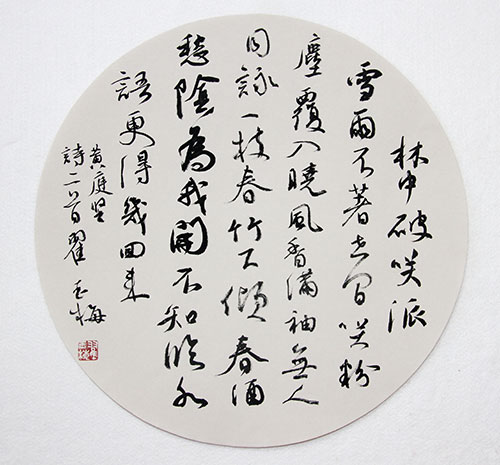 林中破咲派
雪雨不著世間咲粉
塵覆入曉風香滿袖無人
同詠一枝春竹下傾春酒
愁陰為我開不知臨水
語更得幾回来
黄庭坚
詩二首翟玉梅